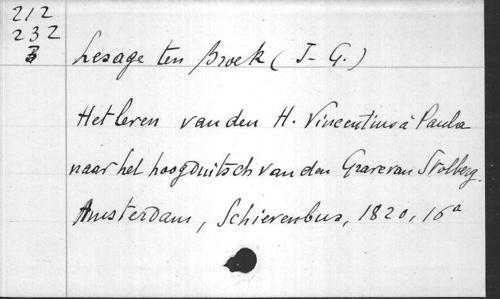 212
232
B
Lesage ten Broek (J-G.)
Het leven van den H. Vincentius à Paula
naar het hoogduitsch van den Grave van Stolberg.
Amsterdam, Schievenbus, 1820, 16°